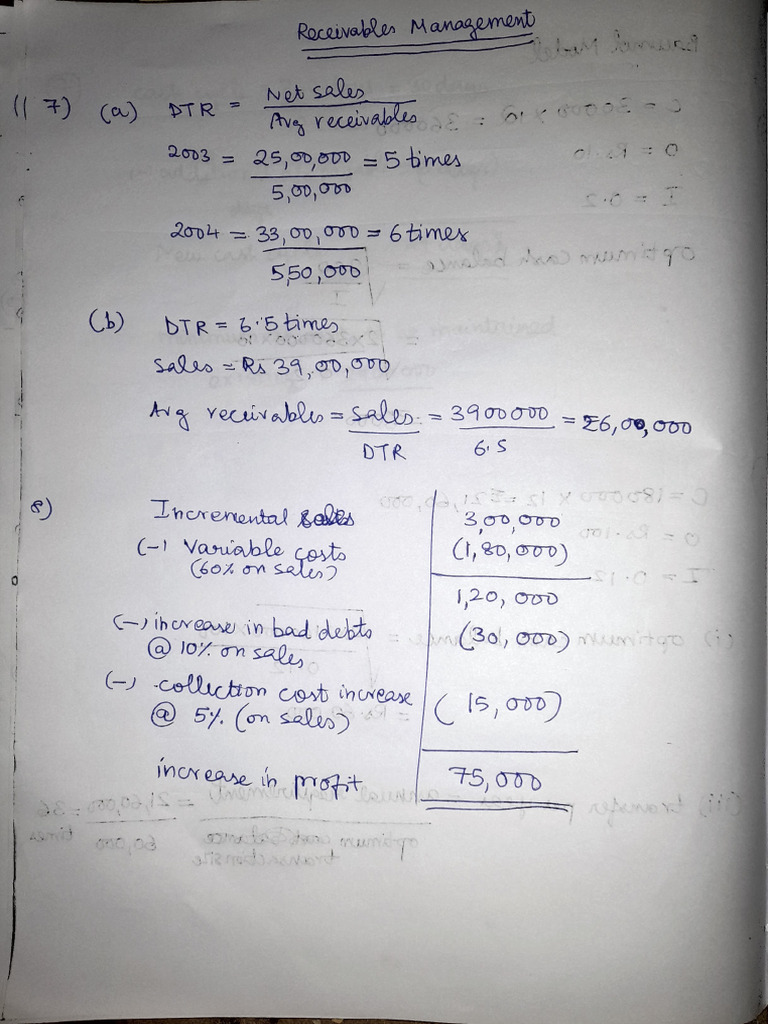 Receivables Management
117) (a) DTR = Net sales / Avg receivables
2003 = 25,00,000 / 5,00,000 = 5 times
2004 = 33,00,000 / 5,50,000 = 6 times
(b) DTR = 6.5 times
Sales = Rs 39,00,000
Avg receivables = Sales / DTR = 3900000 / 6.5 = ₹6,00,000
8) Incremental sales 3,00,000
(-) Variable costs (1,80,000)
(60% on sales)
1,20,000
(-) increase in bad debts (30,000)
@ 10% on sales
(-) collection cost increase (15,000)
@ 5% (on sales)
increase in profit 75,000